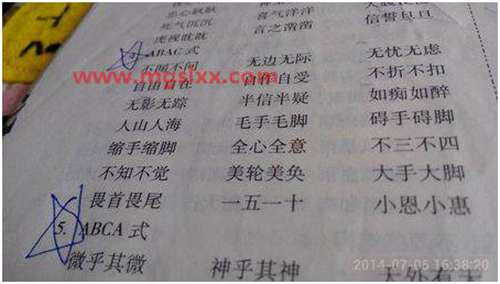 死气沉沉 喜气洋洋
虎视眈眈 言之凿凿 信誓旦旦
ABAC 式
不闻不问 无边无际 无忧无虑
自由自在 自作自受 不折不扣
www.mqslxx.com
无影无踪 半信半疑 如痴如醉
人山人海 毛手毛脚 碍手碍脚
缩手缩脚 全心全意 不三不四
不知不觉 美轮美奂 大手大脚
畏首畏尾 一五一十 小恩小惠
5. ABCA 式
微乎其微 神乎其神 天外有天
2014-07-05 16:38:20